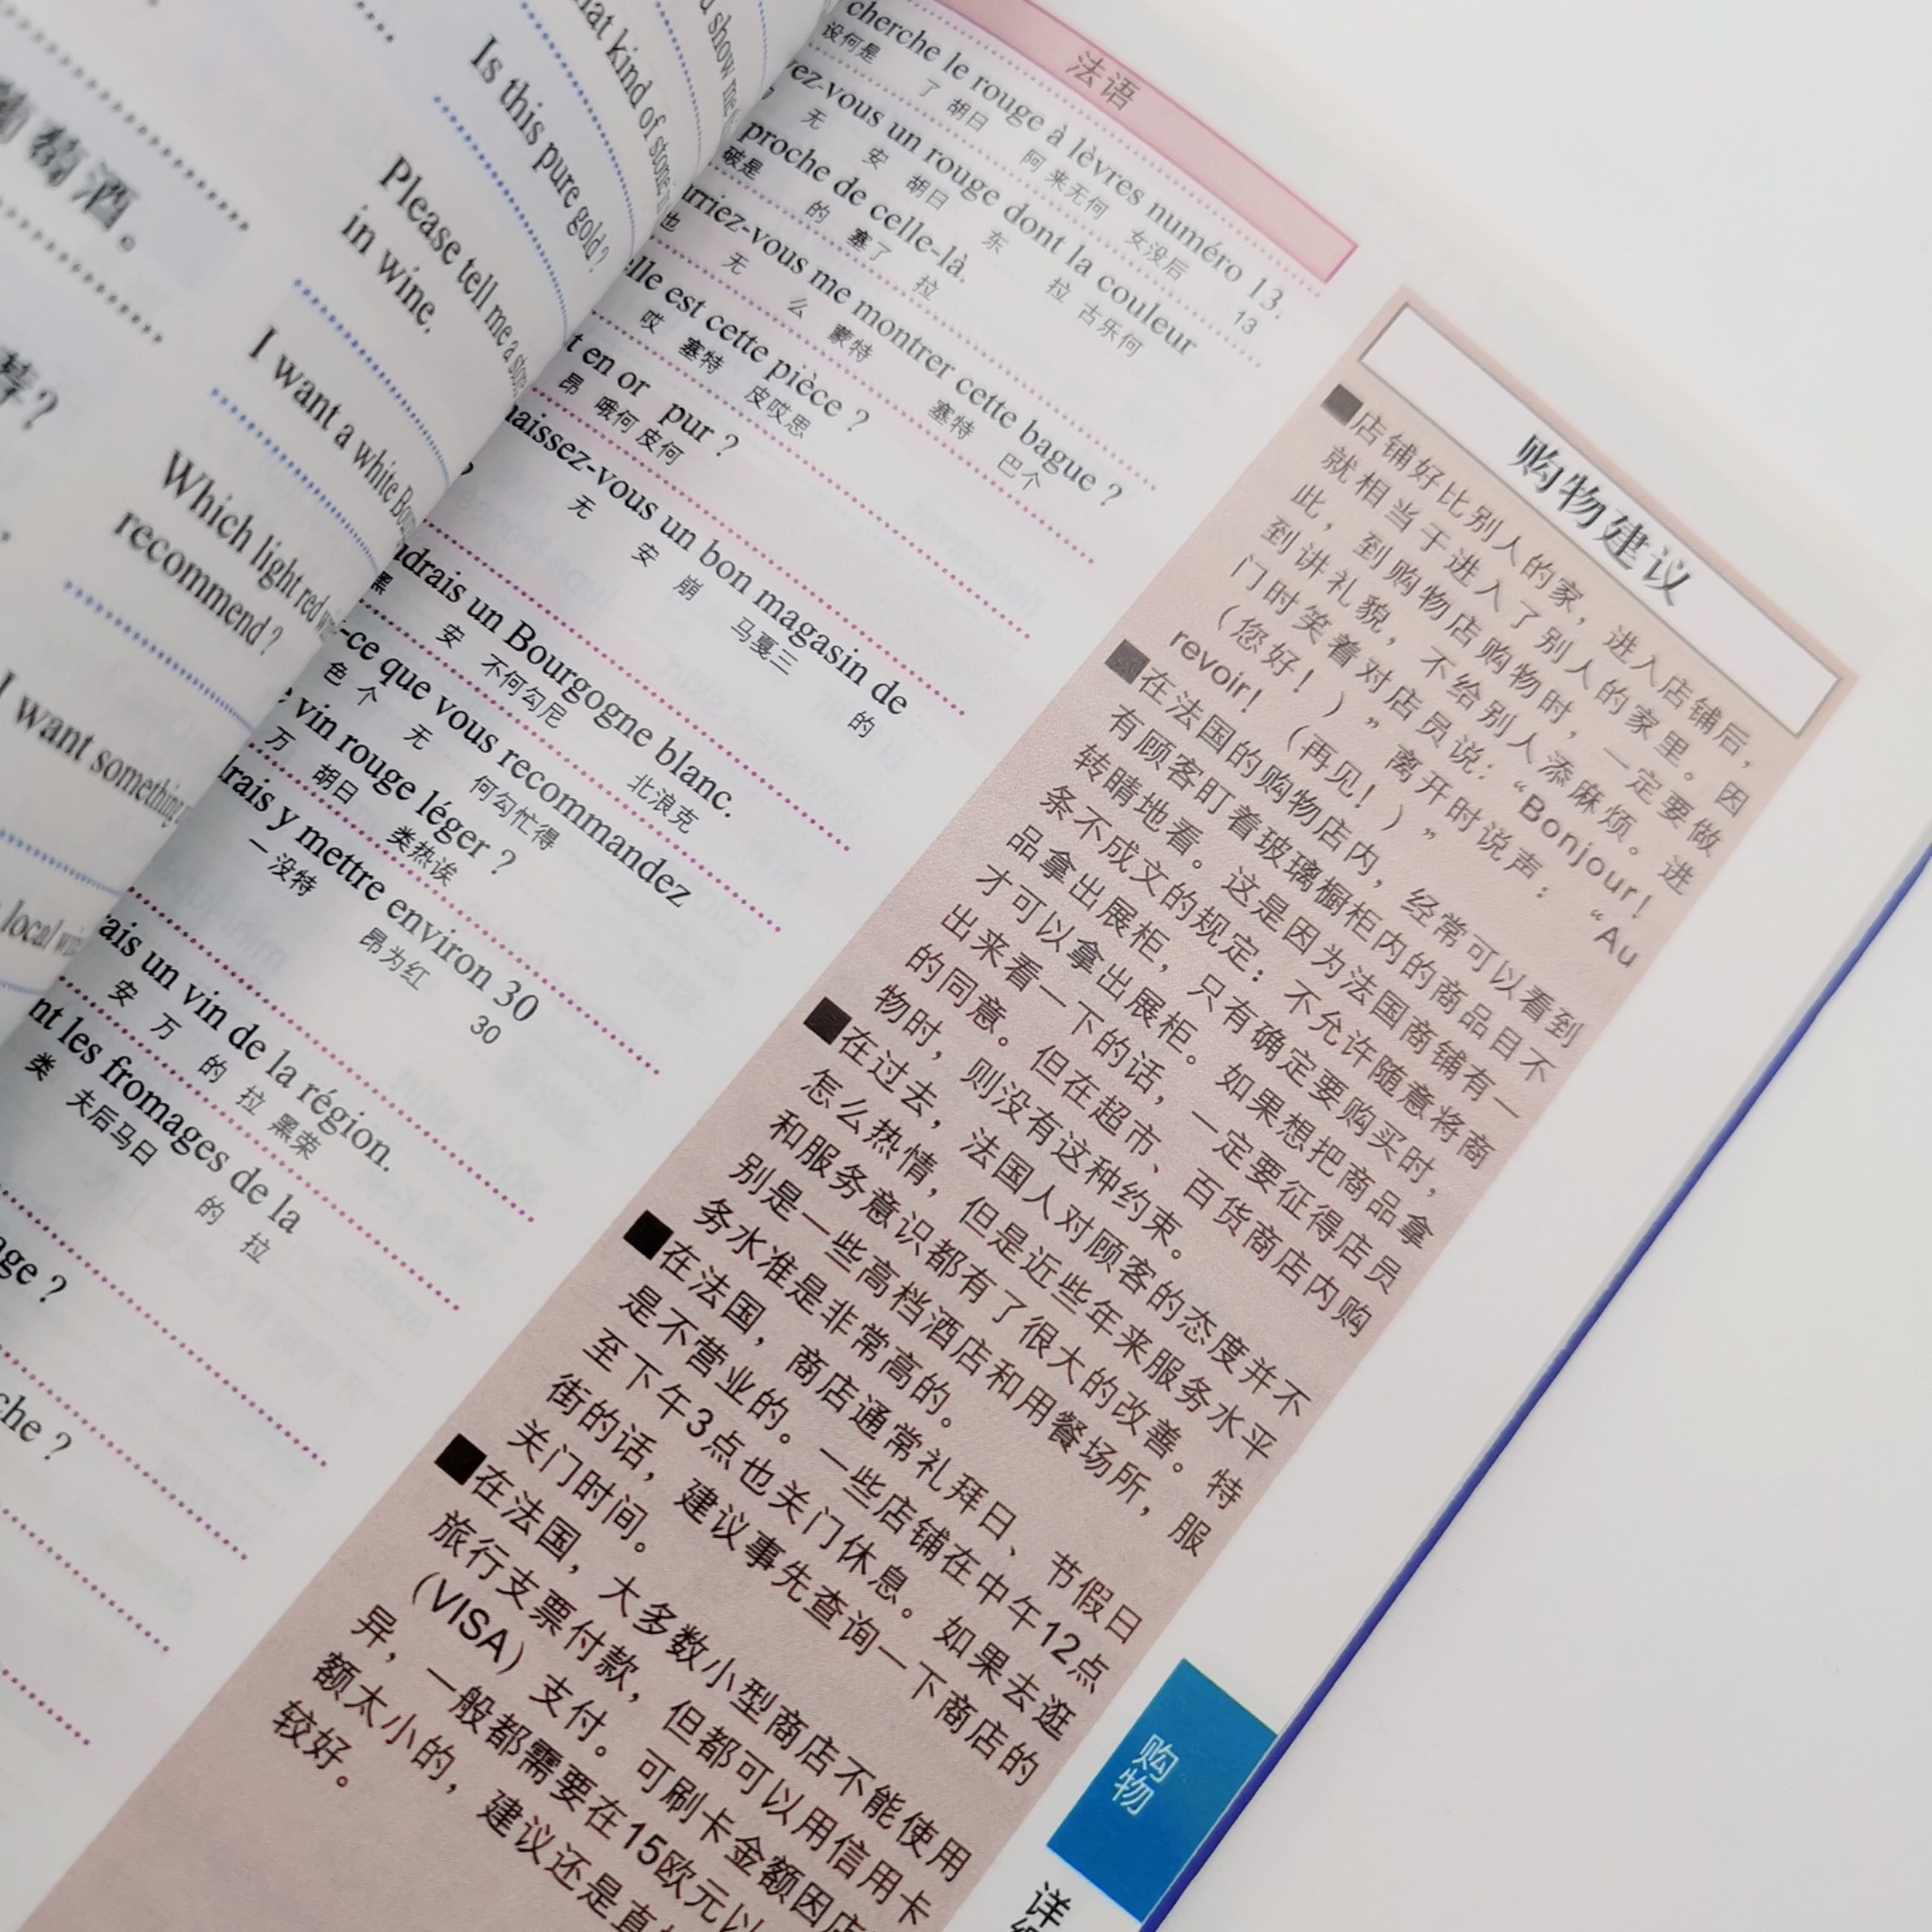 葡萄酒。
荐？
u show me
hat kind of stone
Is this pure gold?
Please tell me a store
in wine.
I want a white
Which light red
recommend?
I want something
local
法语
cherche le rouge à lèvres numéro 13.
设何是 了 胡日 阿 来无何 女没后 13
vez-vous un rouge dont la couleur
无 安 胡日 东 拉 古乐何
proche de celle-là.
破是 的 塞了 拉
urriez-vous me montrer cette bague ?
也 无 么 蒙特 塞特 巴个
elle est cette pièce ?
哎 塞特 皮哎思
t en or pur ?
昂 哦何 皮何
naissez-vous un bon magasin de
无 安 崩 马戛三 的
?
udrais un Bourgogne blanc.
黑 安 不何勾尼 北浪克
-ce que vous recommandez
色 个 无 何勾忙得
vin rouge léger ?
万 胡日 类热诶
drais y mettre environ 30
一 没特 昂为红 30
rais un vin de la région.
安 万 的 拉 黑荣
nt les fromages de la
类 夫后马日 的 拉
age ?
che ?
购物建议
■店铺好比别人的家，进入店铺后，
就相当于进入了别人的家里。因
此，到购物店购物时，一定要做
到讲礼貌，不给别人添麻烦。进
门时笑着对店员说：“Bonjour!
（您好！）”离开时说声：“Au
revoir!（再见！）”
■在法国的购物店内，经常可以看到
有顾客盯着玻璃橱柜内的商品目不
转睛地看。这是因为法国商铺有一
条不成文的规定：不允许随意将商
品拿出展柜，只有确定要购买时，
才可以拿出展柜。如果想把商品拿
出来看一下的话，一定要征得店员
的同意。但在超市、百货商店内购
物时，则没有这种约束。
■在过去，法国人对顾客的态度并不
怎么热情，但是近些年来服务水平
和服务意识都有了很大的改善。特
别是一些高档酒店和用餐场所，服
务水准是非常高的。
■在法国，商店通常礼拜日、节假日
是不营业的。一些店铺在中午12点
至下午3点也关门休息。如果去逛
街的话，建议事先查询一下商店的
关门时间。
■在法国，大多数小型商店不能使用
旅行支票付款，但都可以用信用卡
（VISA）支付。可刷卡金额因店
异，一般都需要在15欧元以
额太小的，建议还是直
较好。
购物
详